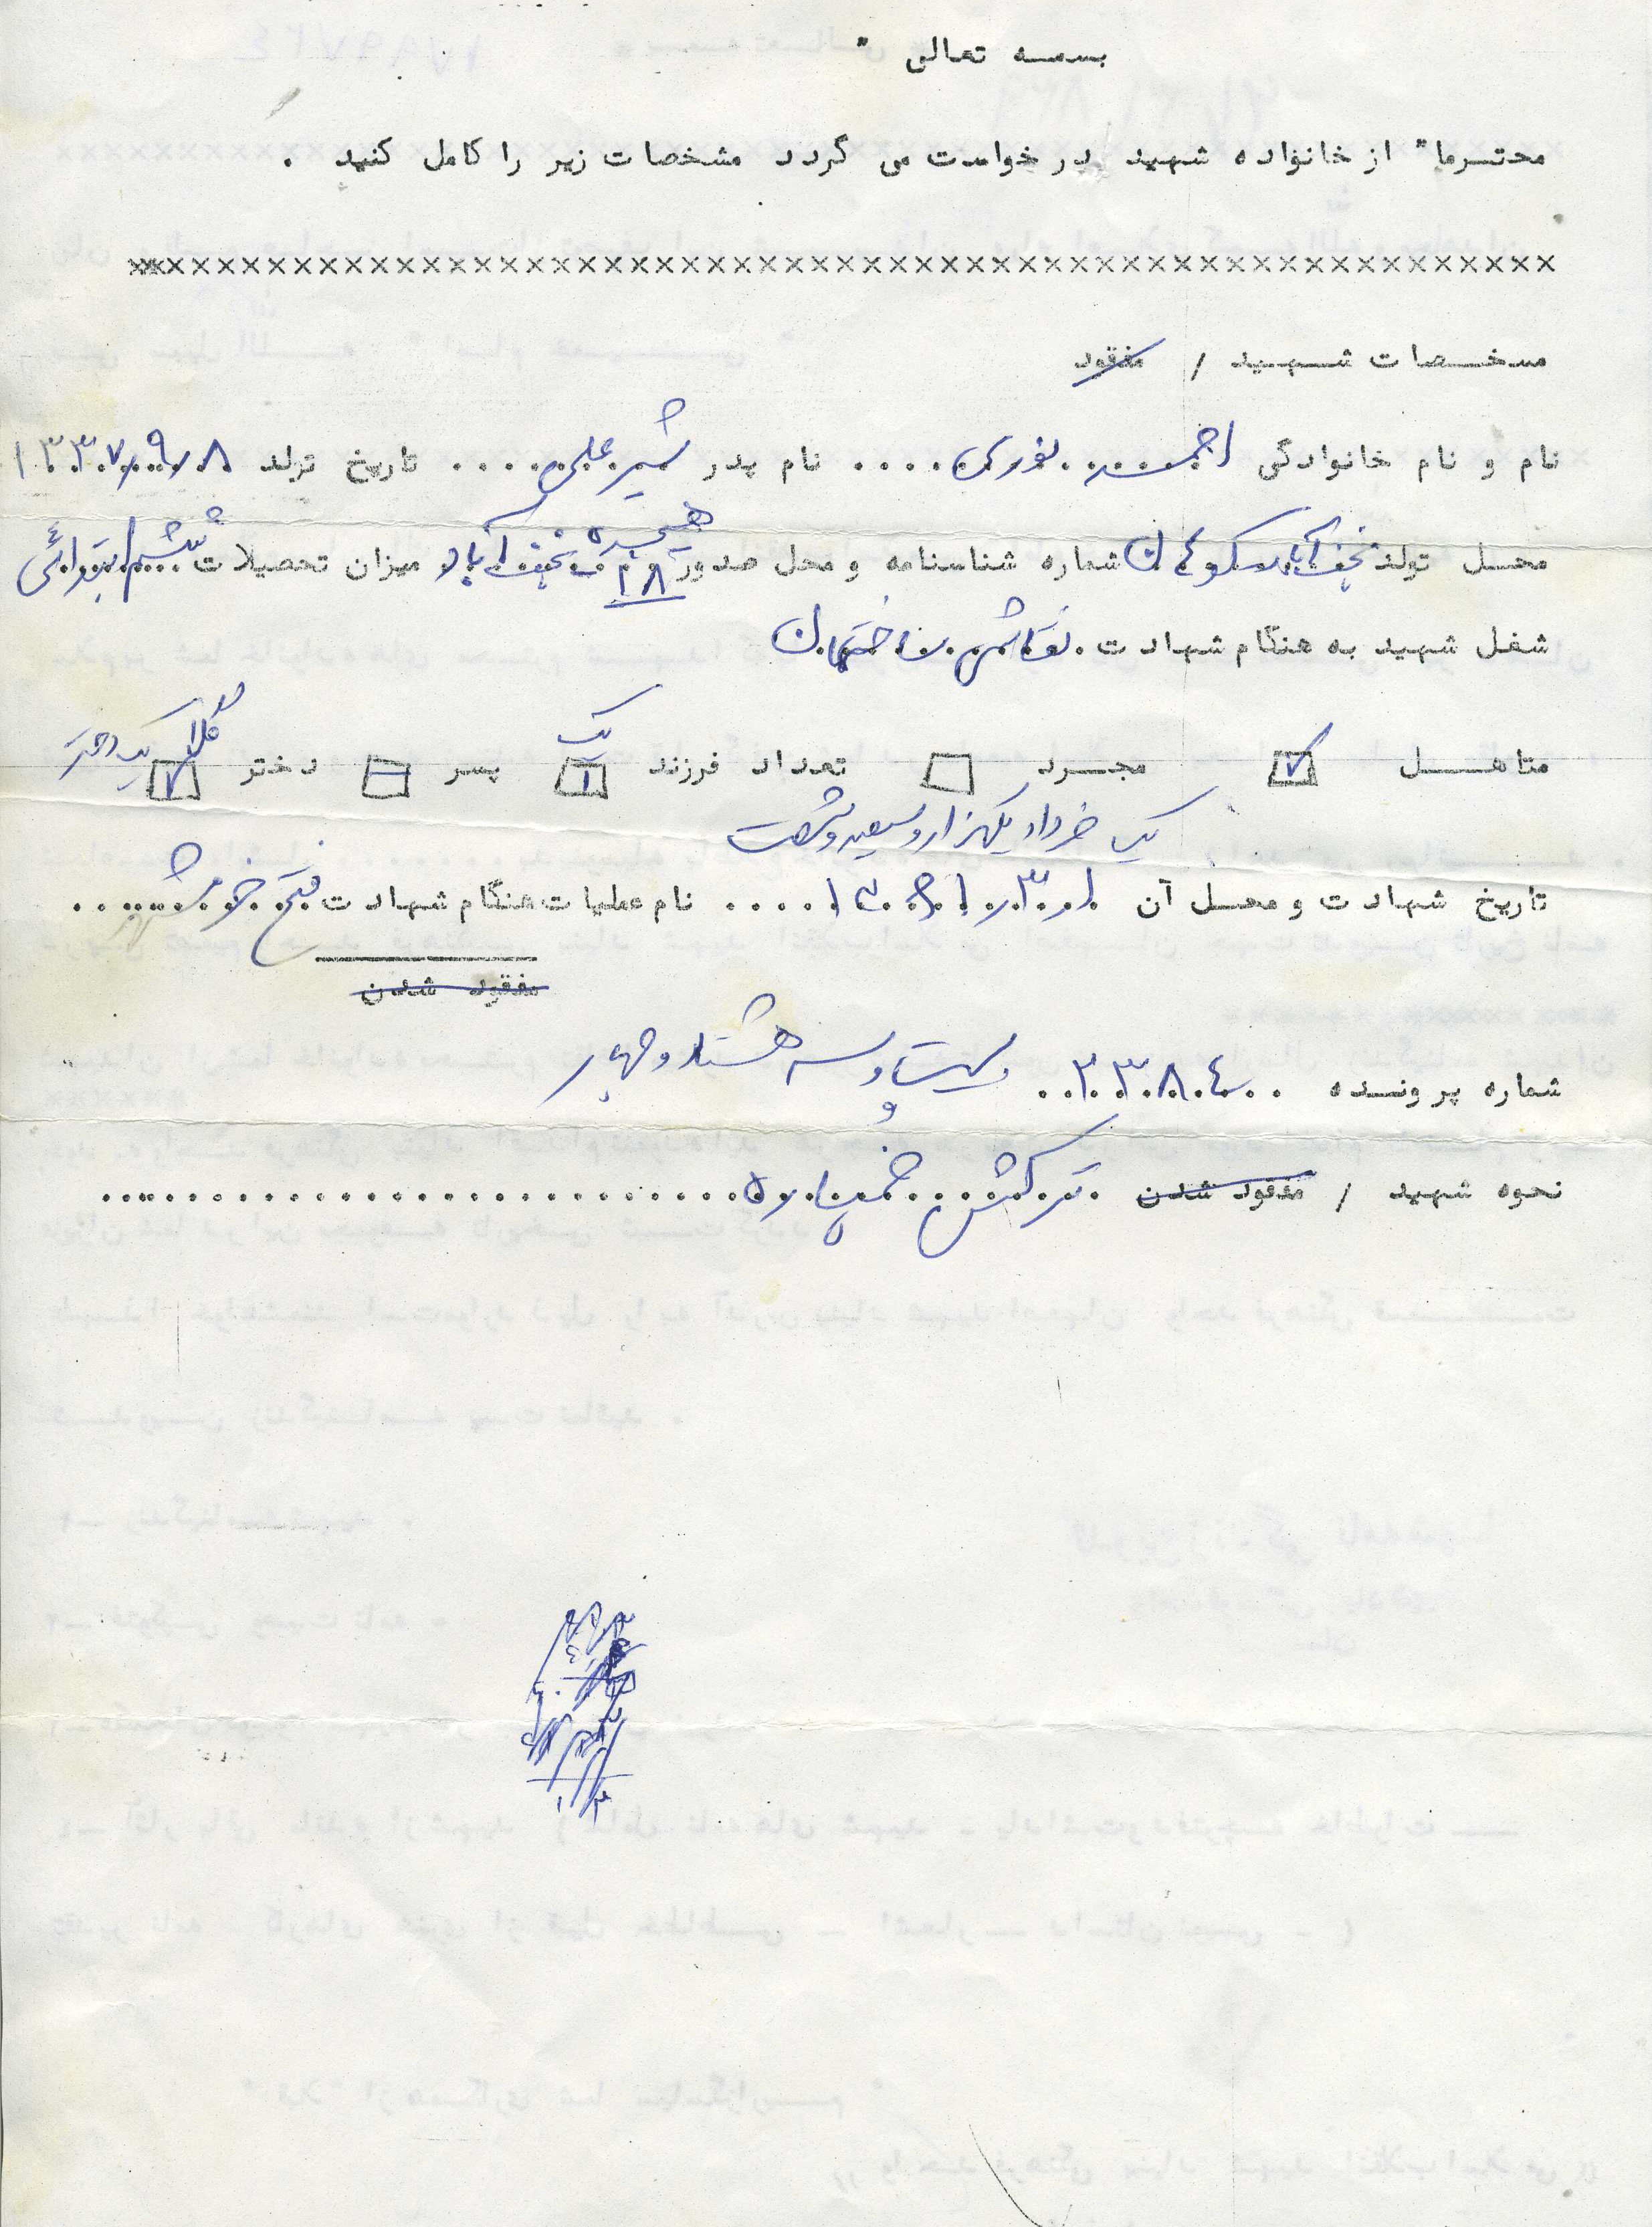 بسمه تعالی "
محترما" از خانواده شهید درخواست می گردد مشخصات زیر را کامل کنید .
×××××××××××××××××××××××××××××××××××××××××××××××××××××××
مشخصات شهید / مفقود
نام و نام خانوادگی احمد نوری .... نام پدر شیرعلی .... تاریخ تولد ۱۳۳۷/۹/۸
هیجده
محل تولد نجف آباد شماره شناسنامه و محل صدور ۱۸ نجف آباد میزان تحصیلات ششم ابتدائی
شغل شهید به هنگام شهادت نقاش ساختمان
یک
متاهل مجرد تعداد فرزند ۱ پسر دختر ۱ یک دختر
یک خرداد یکهزار و سیصد و شصت
تاریخ شهادت و محل آن ۱۳۶۱/۳/۱ .... نام عملیات هنگام شهادت فتح خرمشهر
مفقود شدن
شماره پرونده ۲۳۸۴ بیست و سه هشتاد و چهار
نحوه شهید / مفقود شدن ترکش خمپاره